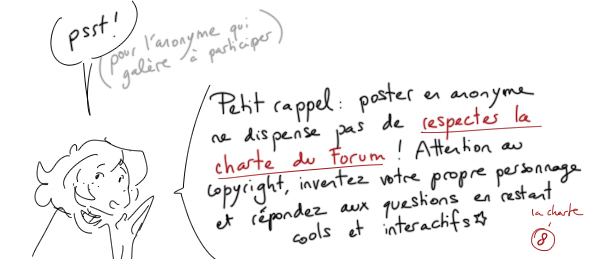 psst!
(pour l'anonyme qui
galère à participer)
Petit rappel : poster en anonyme
ne dispense pas de respectes la
charte du Forum ! Attention au
copyright, inventez votre propre personnage
et répondez aux questions en restant
cools et interactifs☆
la charte
8